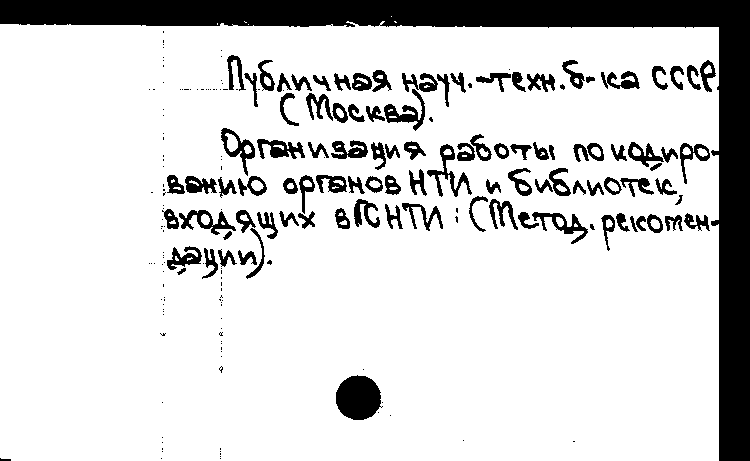 Публичная науч.-техн. б-ка СССР.
(Москва).
Организация работы по кодиро-
ванию органов НТИ и библиотек,
входящих в ГСНТИ : (Метод. рекомен-
дации).